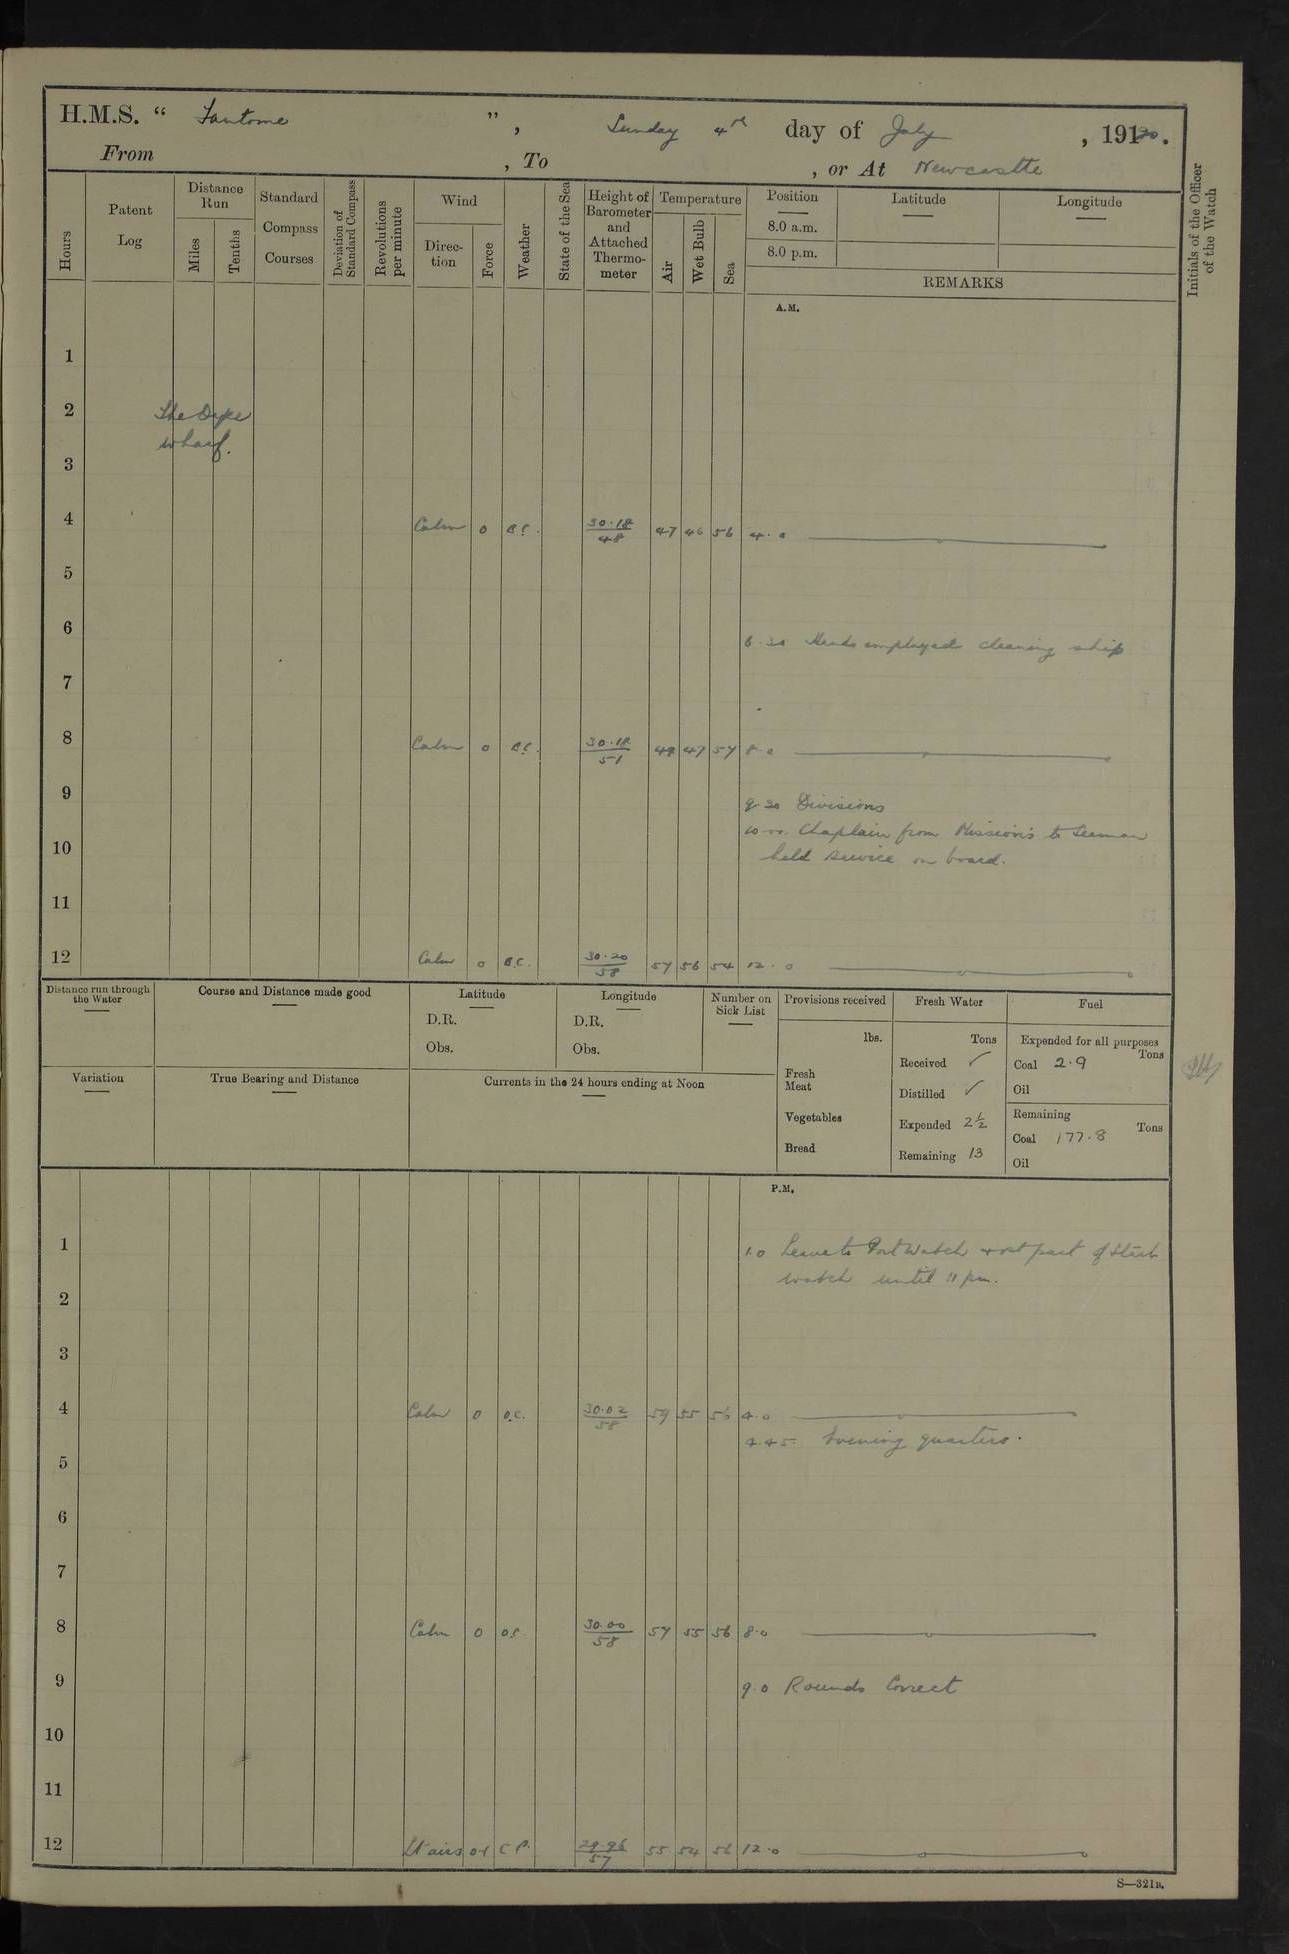 H.M.S. “ Fantome ”, Sunday 4th day of July, 1920.
From , To , or At Newcastle
Hours
Patent Log
Distance Run
Miles
Tenths
Standard Compass Courses
Deviation of Standard Compass
Revolutions per minute
Wind
Direction
Force
Weather
State of the Sea
Height of Barometer and Attached Thermometer
Temperature
Air
Wet Bulb
Sea
Position
8.0 a.m.
8.0 p.m.
Latitude
Longitude
REMARKS
Initials of the Officer of the Watch
A.M.
1
2 The Dyke
wharf.
3
4 Calm 0 B.C. 30.18/48 47 46 56 4.0
5
6
6.30 Hands employed cleaning ship
7
8 Calm 0 B.C. 30.18/51 49 47 57 8.0
9
9.30 Divisions
10.00 Chaplain from Missions to Seaman
10
held service on board.
11
12 Calm 0 B.C. 30.20/58 57 56 54 12.0
Distance run through the Water
Course and Distance made good
Latitude
D.R.
Obs.
Longitude
D.R.
Obs.
Number on Sick List
Provisions received
lbs.
Fresh Meat
Vegetables
Bread
Fresh Water
Tons
Received ✓
Distilled ✓
Expended 2½
Remaining 13
Fuel
Expended for all purposes
Tons
Coal 2.9
Oil
Remaining
Tons
Coal 177.8
Oil
Variation
True Bearing and Distance
Currents in the 24 hours ending at Noon
P.M.
1 1.0 Leave to Port Watch & 1st part of Starb
watch until 11 pm.
2
3
4 Calm 0 O.C. 30.02/58 59 55 56 4.0
4.45 Evening quarters.
5
6
7
8 Calm 0 O.C. 30.00/58 57 55 56 8.0
9 9.0 Rounds Correct
10
11
12 Lt airs 0-1 29.96/57 55 54 56 12.0
S—321B.